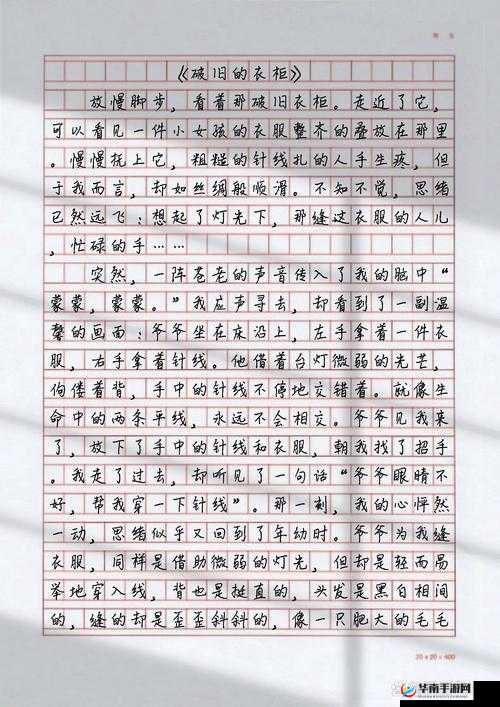 《破旧的衣柜》
放慢脚步，看着那破旧衣柜。走近了它，
可以看见一件小女孩的衣服整齐的叠放在那里
。慢慢抚上它，粗糙的针线扎的人手生疼，但
于我而言，却如丝绸般顺滑。不知不觉，思绪
已然远飞：想起了灯光下，那缝这衣服的人儿
，忙碌的手……
突然，一阵苍老的声音传入了我的脑中“
蒙蒙，蒙蒙。”我应声寻去，却看到了一副温
馨的画面：爷爷坐在床沿上，左手拿着一件衣
服，右手拿着针线。他借着台灯微弱的光芒，
佝偻着背，手中的针线不停地交错着。就像生
命中的两条平线，永远不会相交。爷爷见我来
了，放下了手中的针线和衣服，朝我找了招手
。我走了过去，却听见了一句话“爷爷眼睛不
好，帮我穿一下针线”。那一刻，我的心怦然
一动，思绪似乎又回到了年幼时。爷爷为我缝
衣服，同样是借助微弱的灯光，但却是轻而易
举地穿入线，背也是挺直的，头发是黑白相间
的，缝的却是歪歪斜斜的，像一只肥大的毛毛
20×20=400
华南手游网